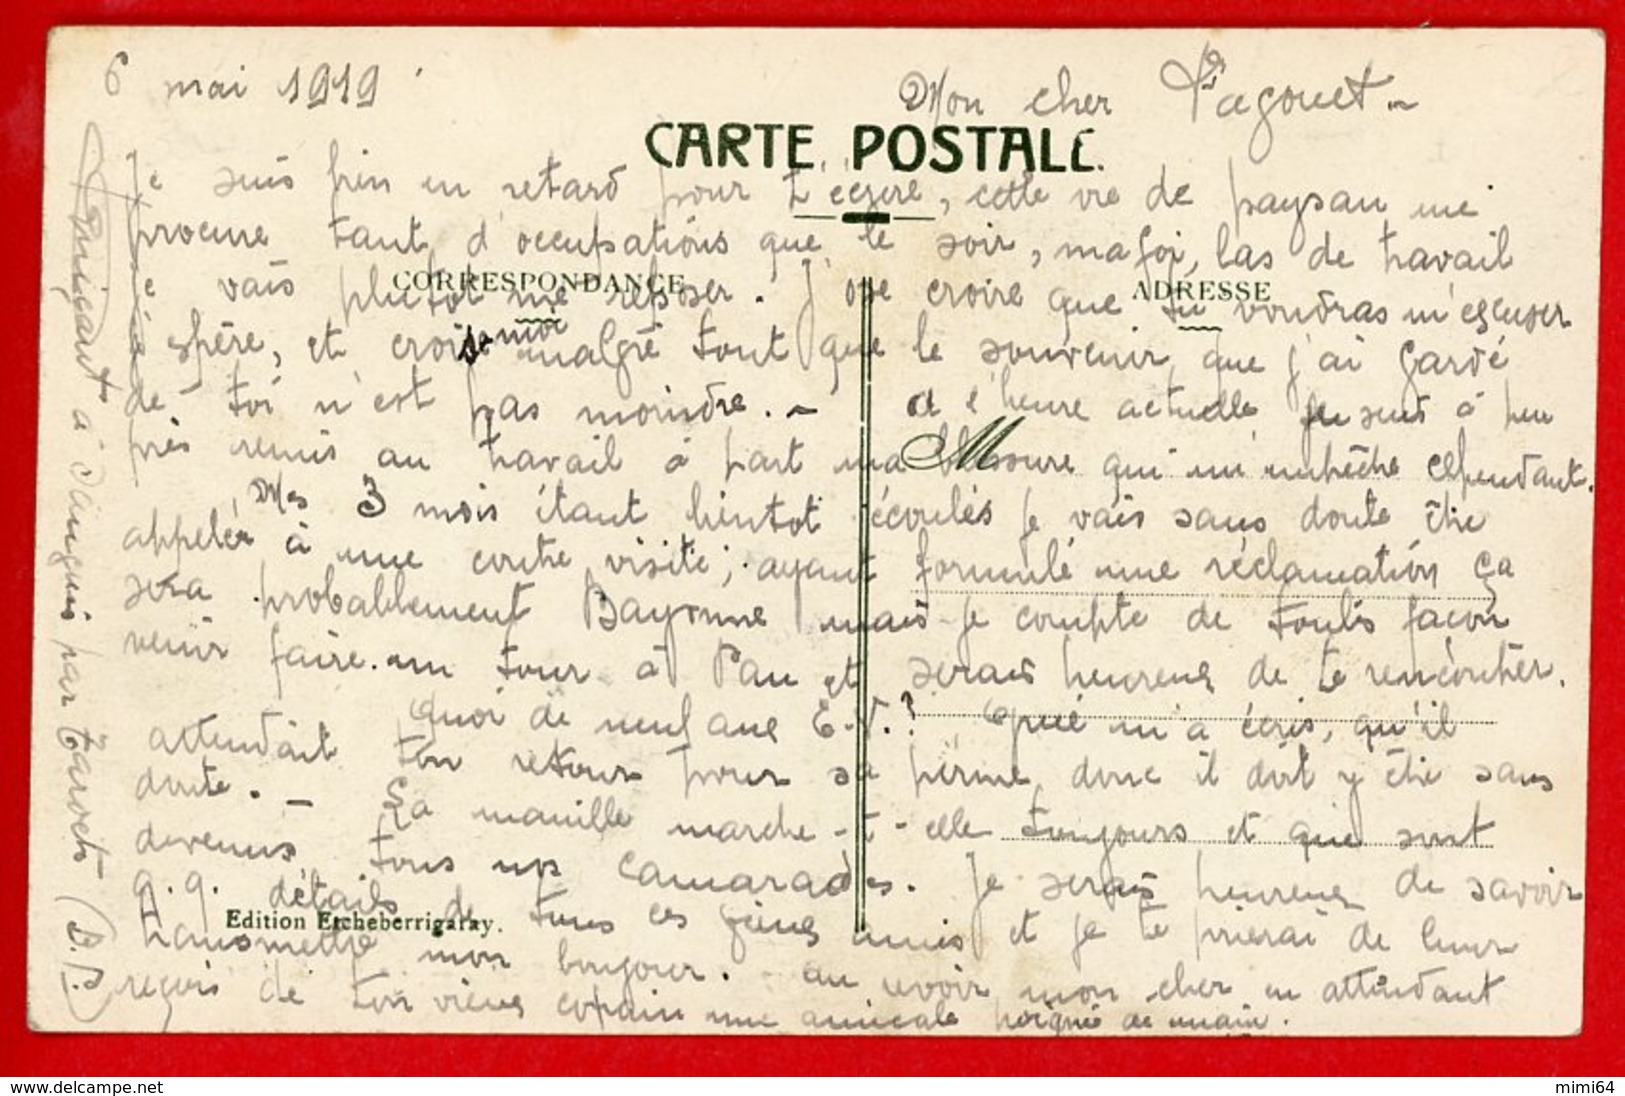 6 mai 1919
Mon cher Pagouet -
CARTE POSTALE
Je suis bien en retard pour t'écrire, cette vie de paysan me
procure tant d'occupations que le soir, ma foi, las de travail
je vais plutôt me reposer. J'ose croire que tu voudras m'escuser
CORRESPONDANCE
ADRESSE
j'espère, et crois moi malgré tout que le souvenir que j'ai gardé
de toi n'est pas moindre. - A l'heure actuelle je suis à peu
près remis au travail à part ma blessure qui m'empêche cependant.
M
Mes 3 mois étant bientot écoulés je vais sans doute être
appelér à une contre visite; ayant formulé une réclamation ça
sera probablement Bayonne mais je compte de toutes façon
venir faire un tour à Pau et serais heureux de te rencontrer.
Quoi de neuf aux E.V.? m'a écris, qu'il
attendait ton retour pour sa perme donc il doit y être sans
doute. - La manille marche-t-elle toujours et que sont
devenus tous nos camarades. Je serais heureux de savoir
q.q. détails de tous ces vieux amis et je te prierai de leur
Edition Etcheberrigaray.
transmettre mon bonjour. au revoir mon cher en attendant
reçois de ton vieux copain une amicale poignée de main.
à par Tarvets (B.P.)
www.delcampe.net
mimi64